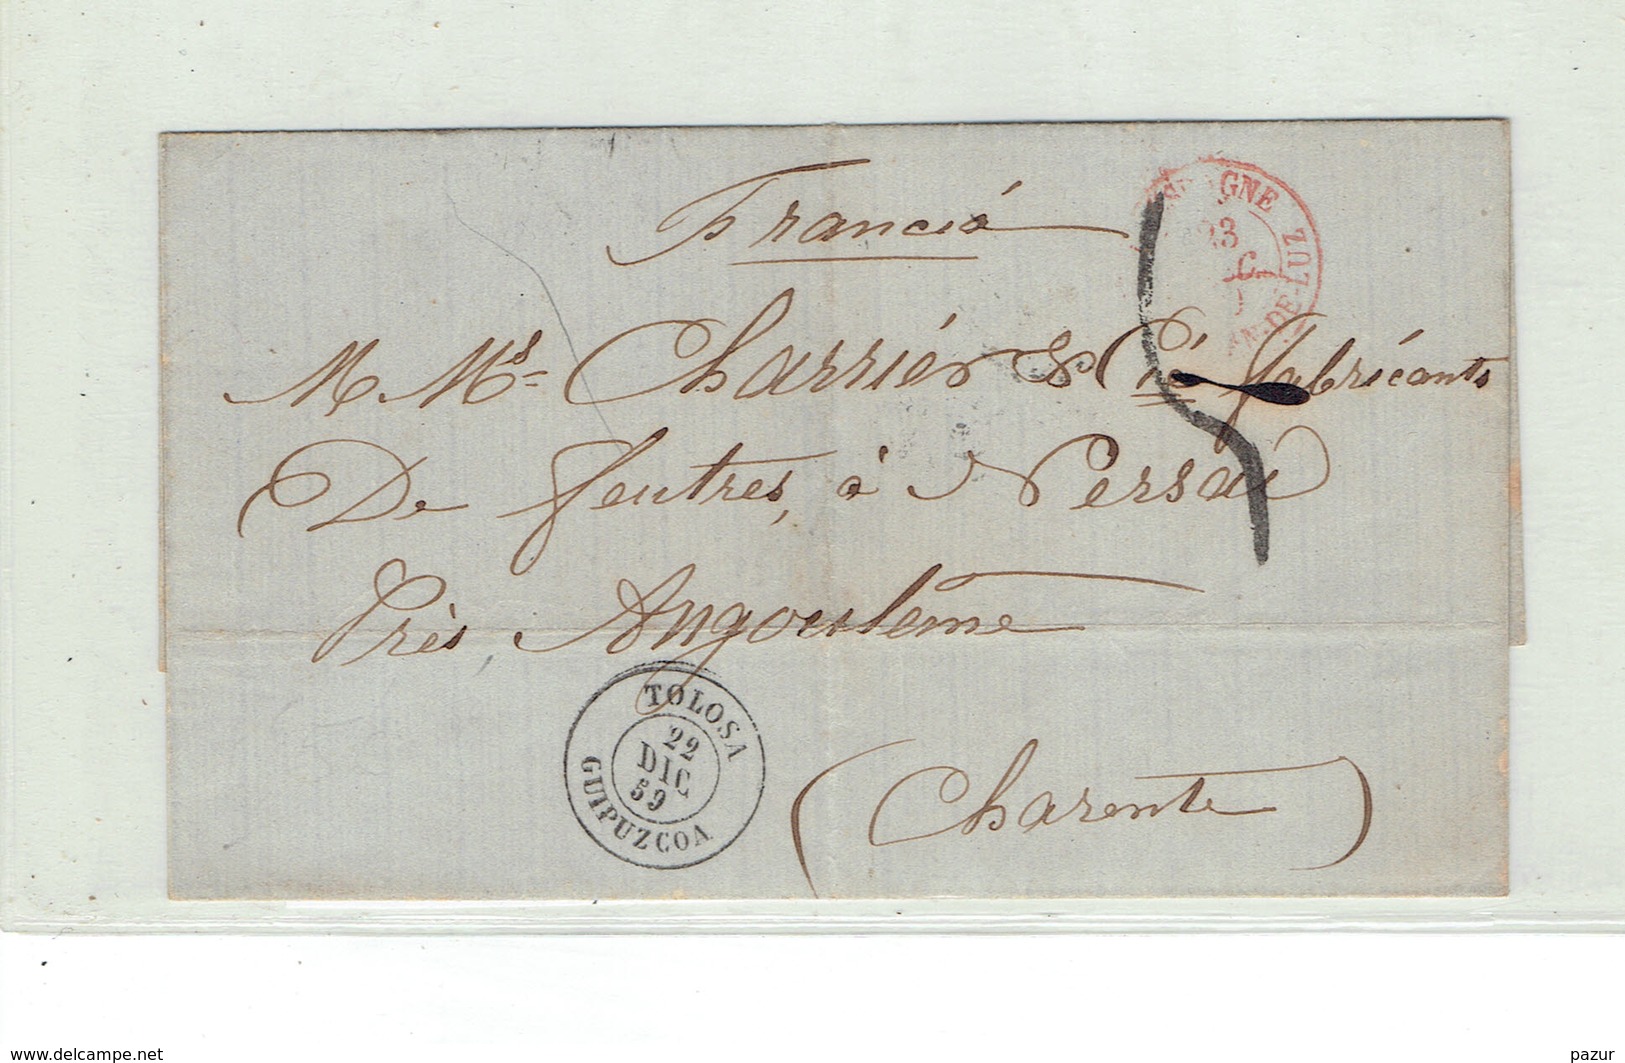 Francia
GNE
23
DE-LUZ
M Ms Charrier & Cie fabricants
De feutres, à Nersac
Près Angoulême
TOLOSA
22
DIC
59
GUIPUZCOA
(Charente)
www.delcampe.net
pazur